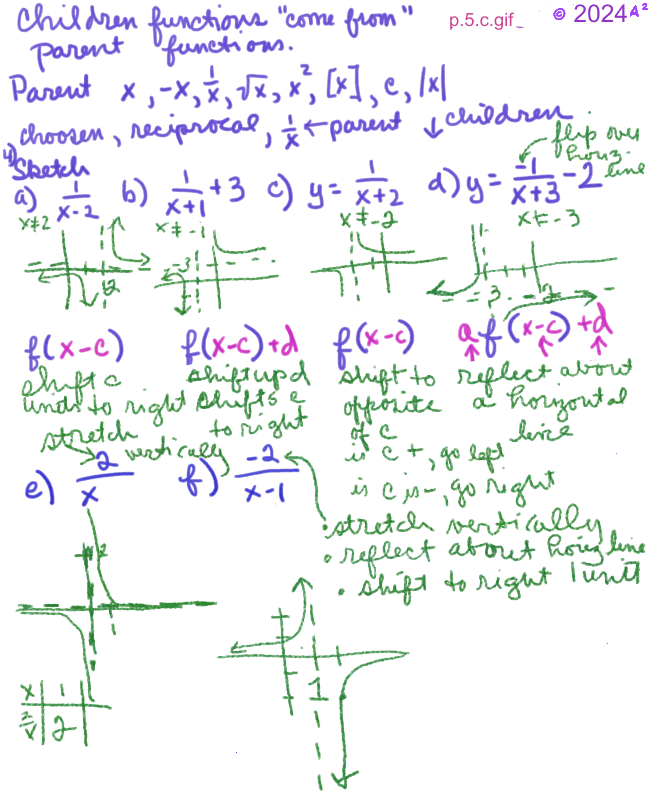 Children functions "come from" p.5.c.gif_ © 2024 A²
parent functions.
Parent x, -x, 1/x, √x, x², [x], c, |x|
choosen, reciprocal, 1/x ← parent ↓ children
flip over
horiz.
line
4) Sketch
a) 1/(x-2) b) 1/(x+1) + 3 c) y = 1/(x+2) d) y = -1/(x+3) - 2
x≠2 x≠-1 x≠-2 x≠-3
-3
2 -3 -2
f(x-c) f(x-c)+d f(x-c) a f(x-c)+d
shift c shift up d shift to reflect about
units to right shifts c opposite a horizontal
to right of c line
is c +, go left
is c is -, go right
stretch vertically
e) 2/x f) -2/(x-1)
• stretch vertically
• reflect about horiz line
• shift to right 1 unit
2
1
x 1
2/x 2